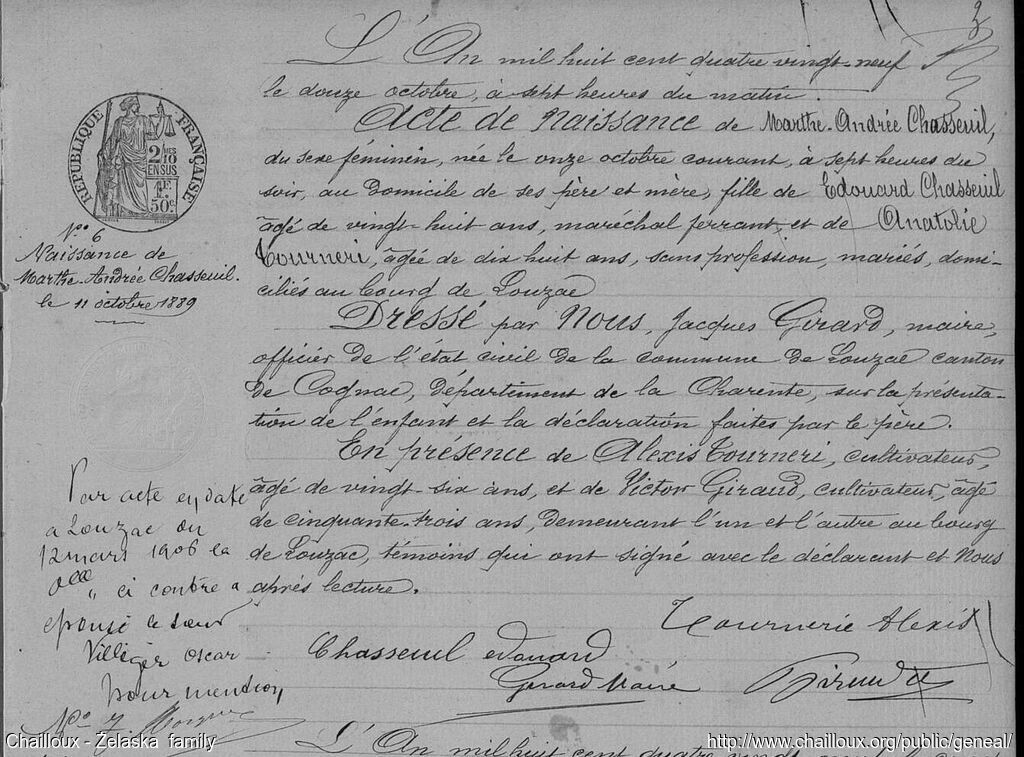 2
L'An mil huit cent quatre vingt-neuf
le douze octobre, à sept heures du matin.
Acte de Naissance de Marthe-Andrée Chasseuil,
du sexe féminin, née le onze octobre courant, à sept heures du
soir, au domicile de ses père et mère, fille de Edouard Chasseuil
âgé de vingt-huit ans, maréchal ferrant, et de Anatolie
Tourneri, âgée de dix huit ans, sans profession, mariés, domi-
ciliés au bourg de Louzac
Dressé par Nous, Jacques Girard, maire,
officier de l'état civil de la commune de Louzac canton
de Cognac, Département de la Charente, sur la présenta-
tion de l'enfant et la déclaration faites par le père.
En présence de Alexis Tourneri, cultivateur,
âgé de vingt-six ans, et de Victor Giraud, cultivateur, âgé
de cinquante-trois ans, demeurant l'un et l'autre au bourg
de Louzac, témoins qui ont signé avec le déclarant et Nous
après lecture.
Tournerie Alexis
Chasseuil edouard
Gerard Maire
REPUBLIQUE FRANÇAISE
2/10 MES
EN SUS
1F.
50c.
No 6
Naissance de
Marthe-Andrée Chasseuil.
le 11 octobre 1889
Par acte en date
a Louzac du
12 mars 1906 la
ci contre a
épousé le sieur
Villiger oscar
pour mention
No 7
L'An mil huit cent quatre vingt
Chailloux - Żelaska family
http://www.chailloux.org/public/geneal/